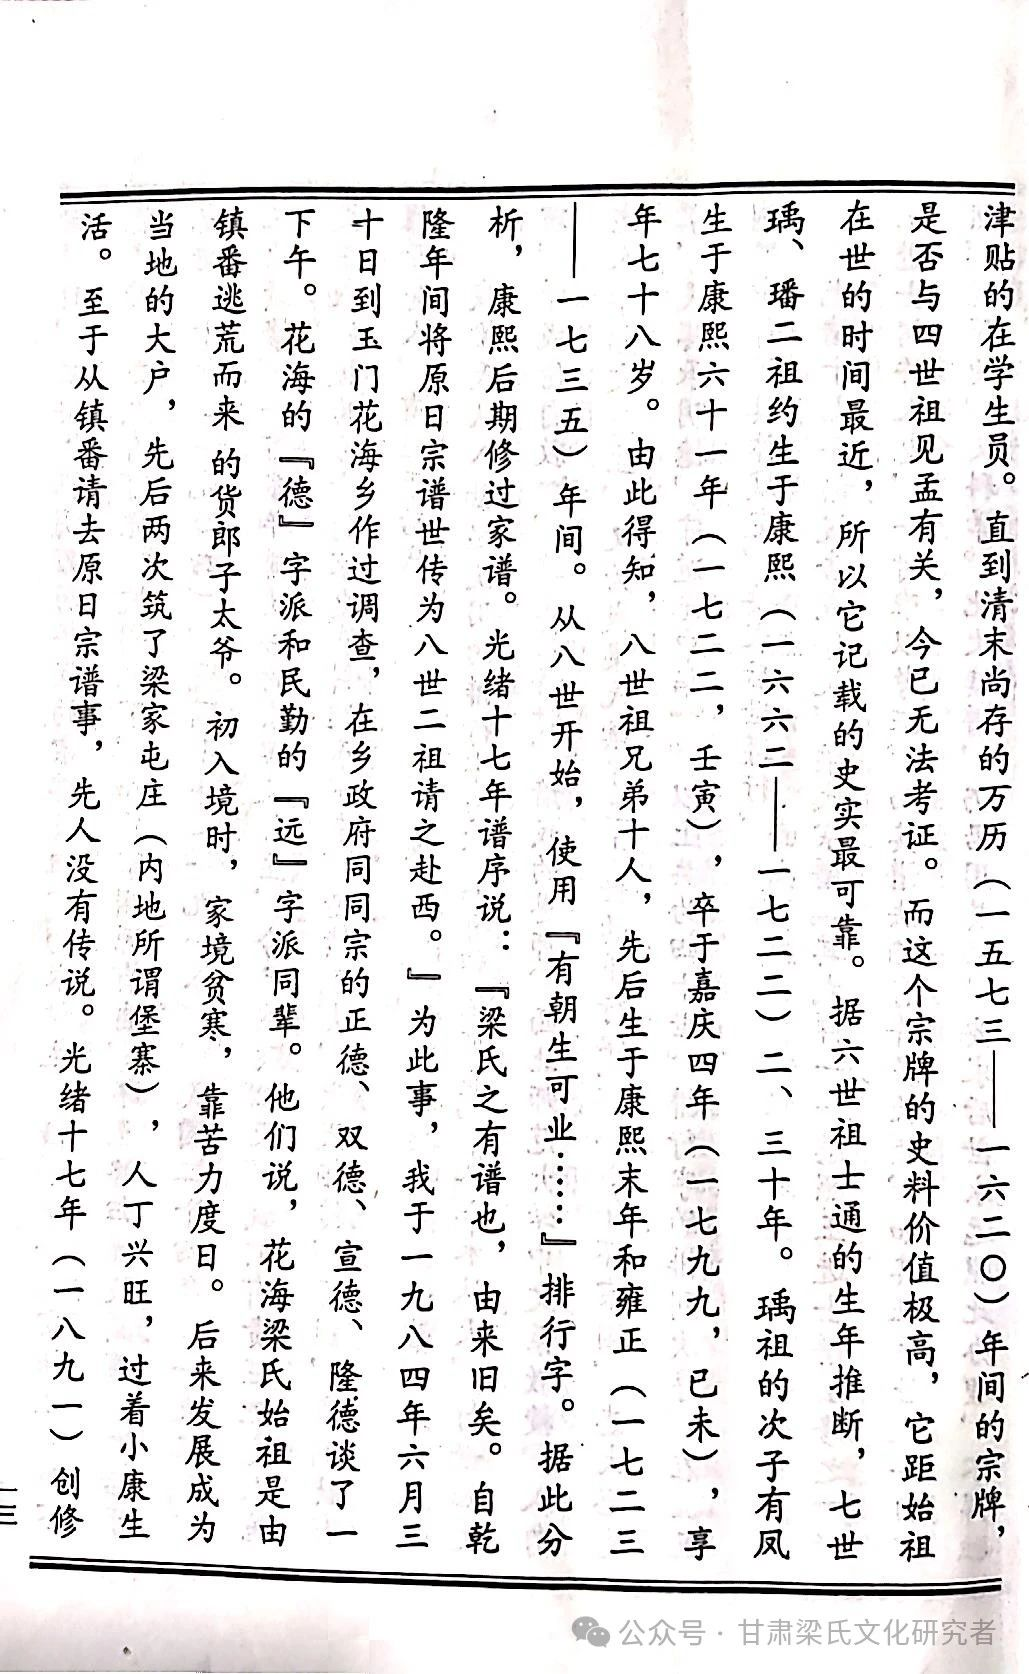 津贴的在学生员。直到清末尚存的万历（一五七三——一六二〇）年间的宗牌，
是否与四世祖见孟有关，今已无法考证。而这个宗牌的史料价值极高，它距始祖
在世的时间最近，所以它记载的史实最可靠。据六世祖士通的生年推断，七世
瑀、璠二祖约生于康熙（一六六二——一七二二）二、三十年。瑀祖的次子有凤
生于康熙六十一年（一七二二，壬寅），卒于嘉庆四年（一七九九，已未），享
年七十八岁。由此得知，八世祖兄弟十人，先后生于康熙末年和雍正（一七二三
——一七三五）年间。从八世开始，使用『有朝生可业……』排行字。据此分
析，康熙后期修过家谱。光绪十七年谱序说：『梁氏之有谱也，由来旧矣。自乾
隆年间将原日宗谱世传为八世二祖请之赴西。』为此事，我于一九八四年六月三
十日到玉门花海乡作过调查，在乡政府同同宗的正德、双德、宣德、隆德谈了一
下午。花海的『德』字派和民勤的『远』字派同辈。他们说，花海梁氏始祖是由
镇番逃荒而来的货郎子太爷。初入境时，家境贫寒，靠苦力度日。后来发展成为
当地的大户，先后两次筑了梁家屯庄（内地所谓堡寨），人丁兴旺，过着小康生
活。至于从镇番请去原日宗谱事，先人没有传说。光绪十七年（一八九一）创修
一三
公众号·甘肃梁氏文化研究者